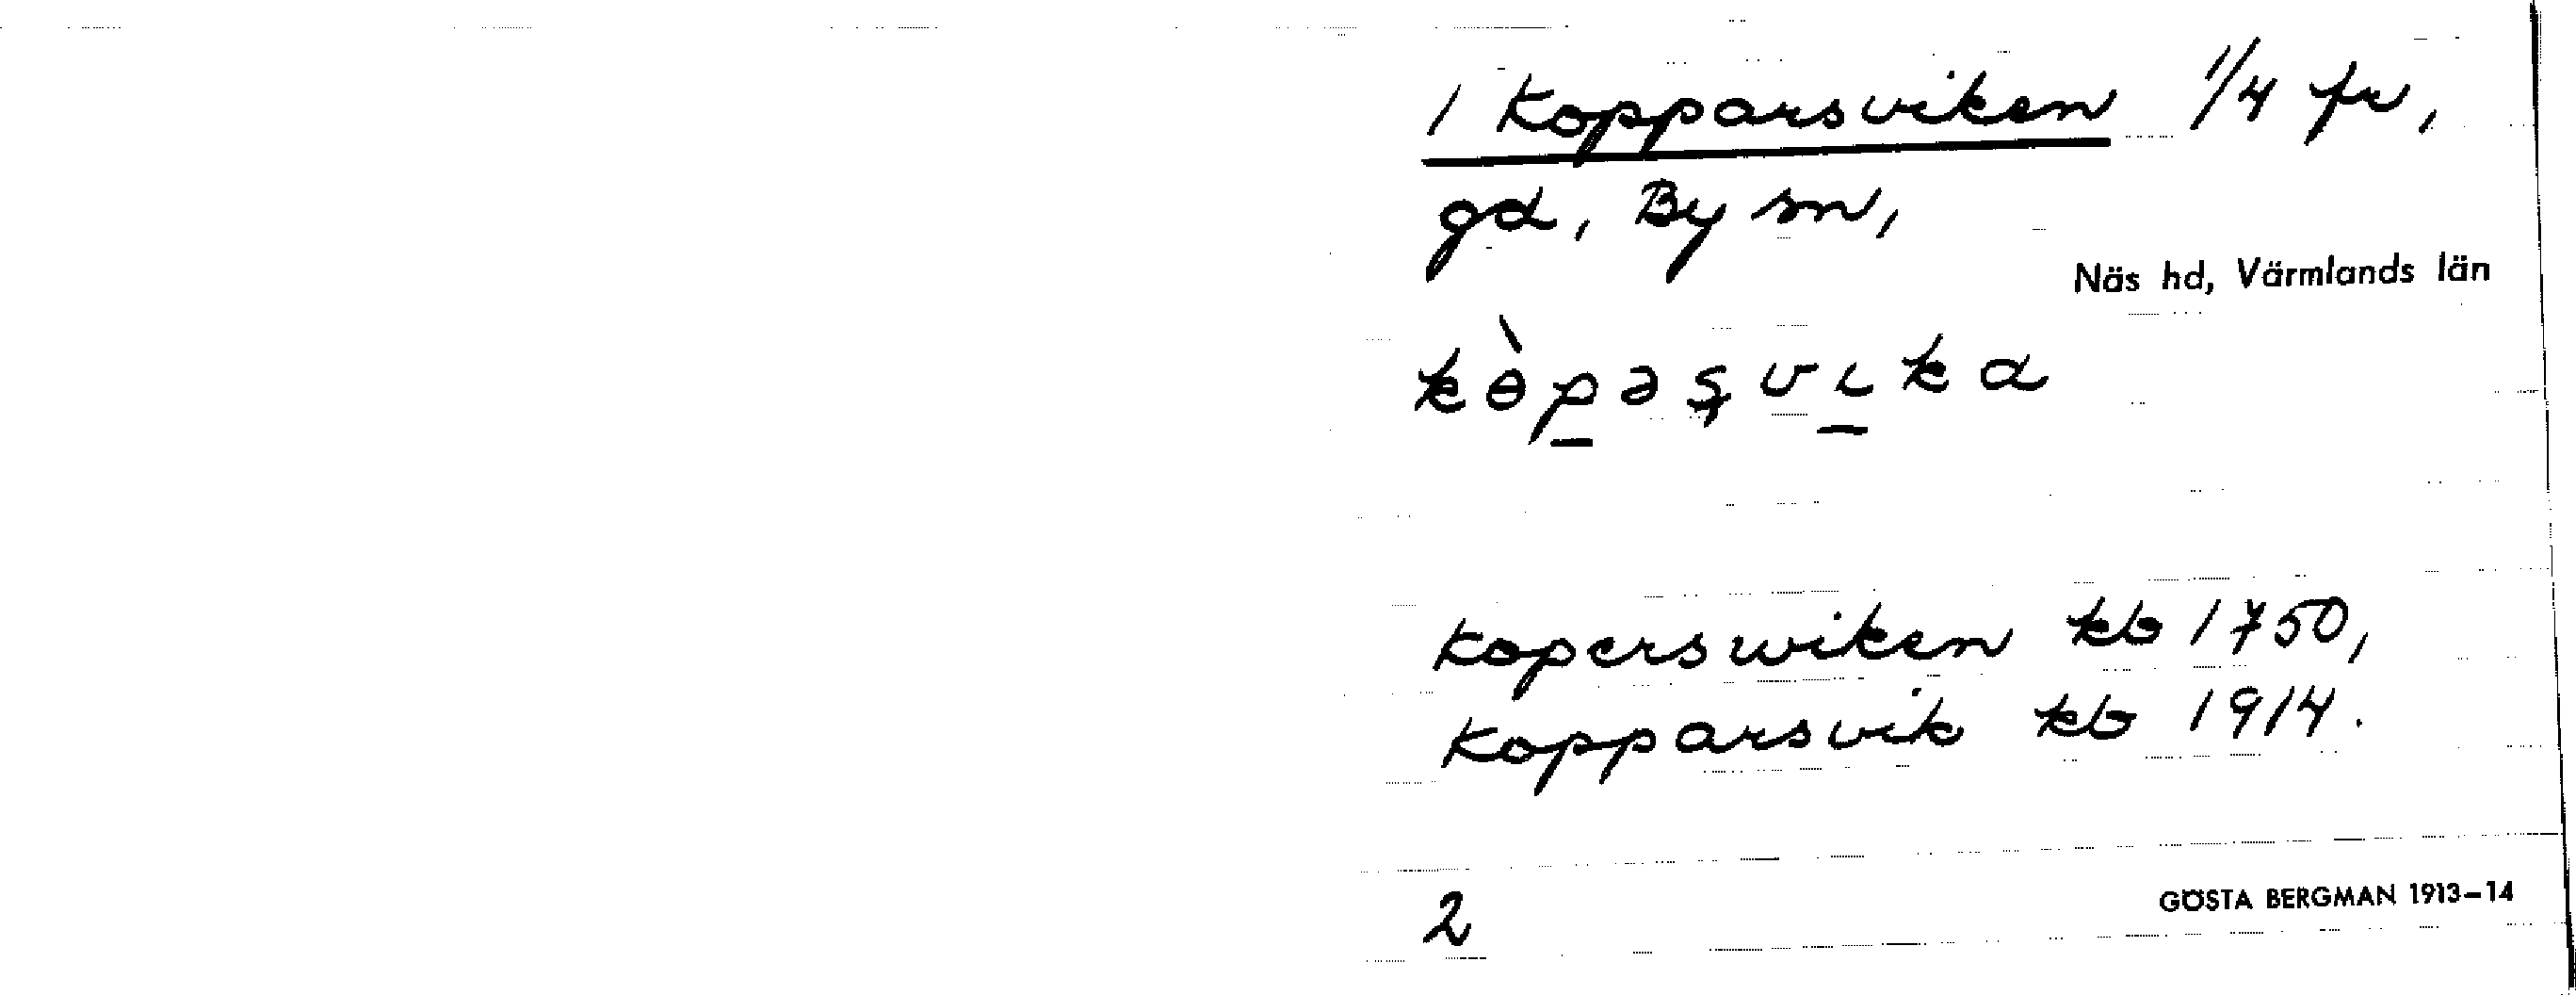 1 Kopparsviken 1/4 fr,
gd, By sn,
Näs hd, Värmlands län
kɵ̀p̲əʂvɩ̲ka
Koperswiken kb 1750,
Kopparsvik kb 1914.
2
GÖSTA BERGMAN 1913-14